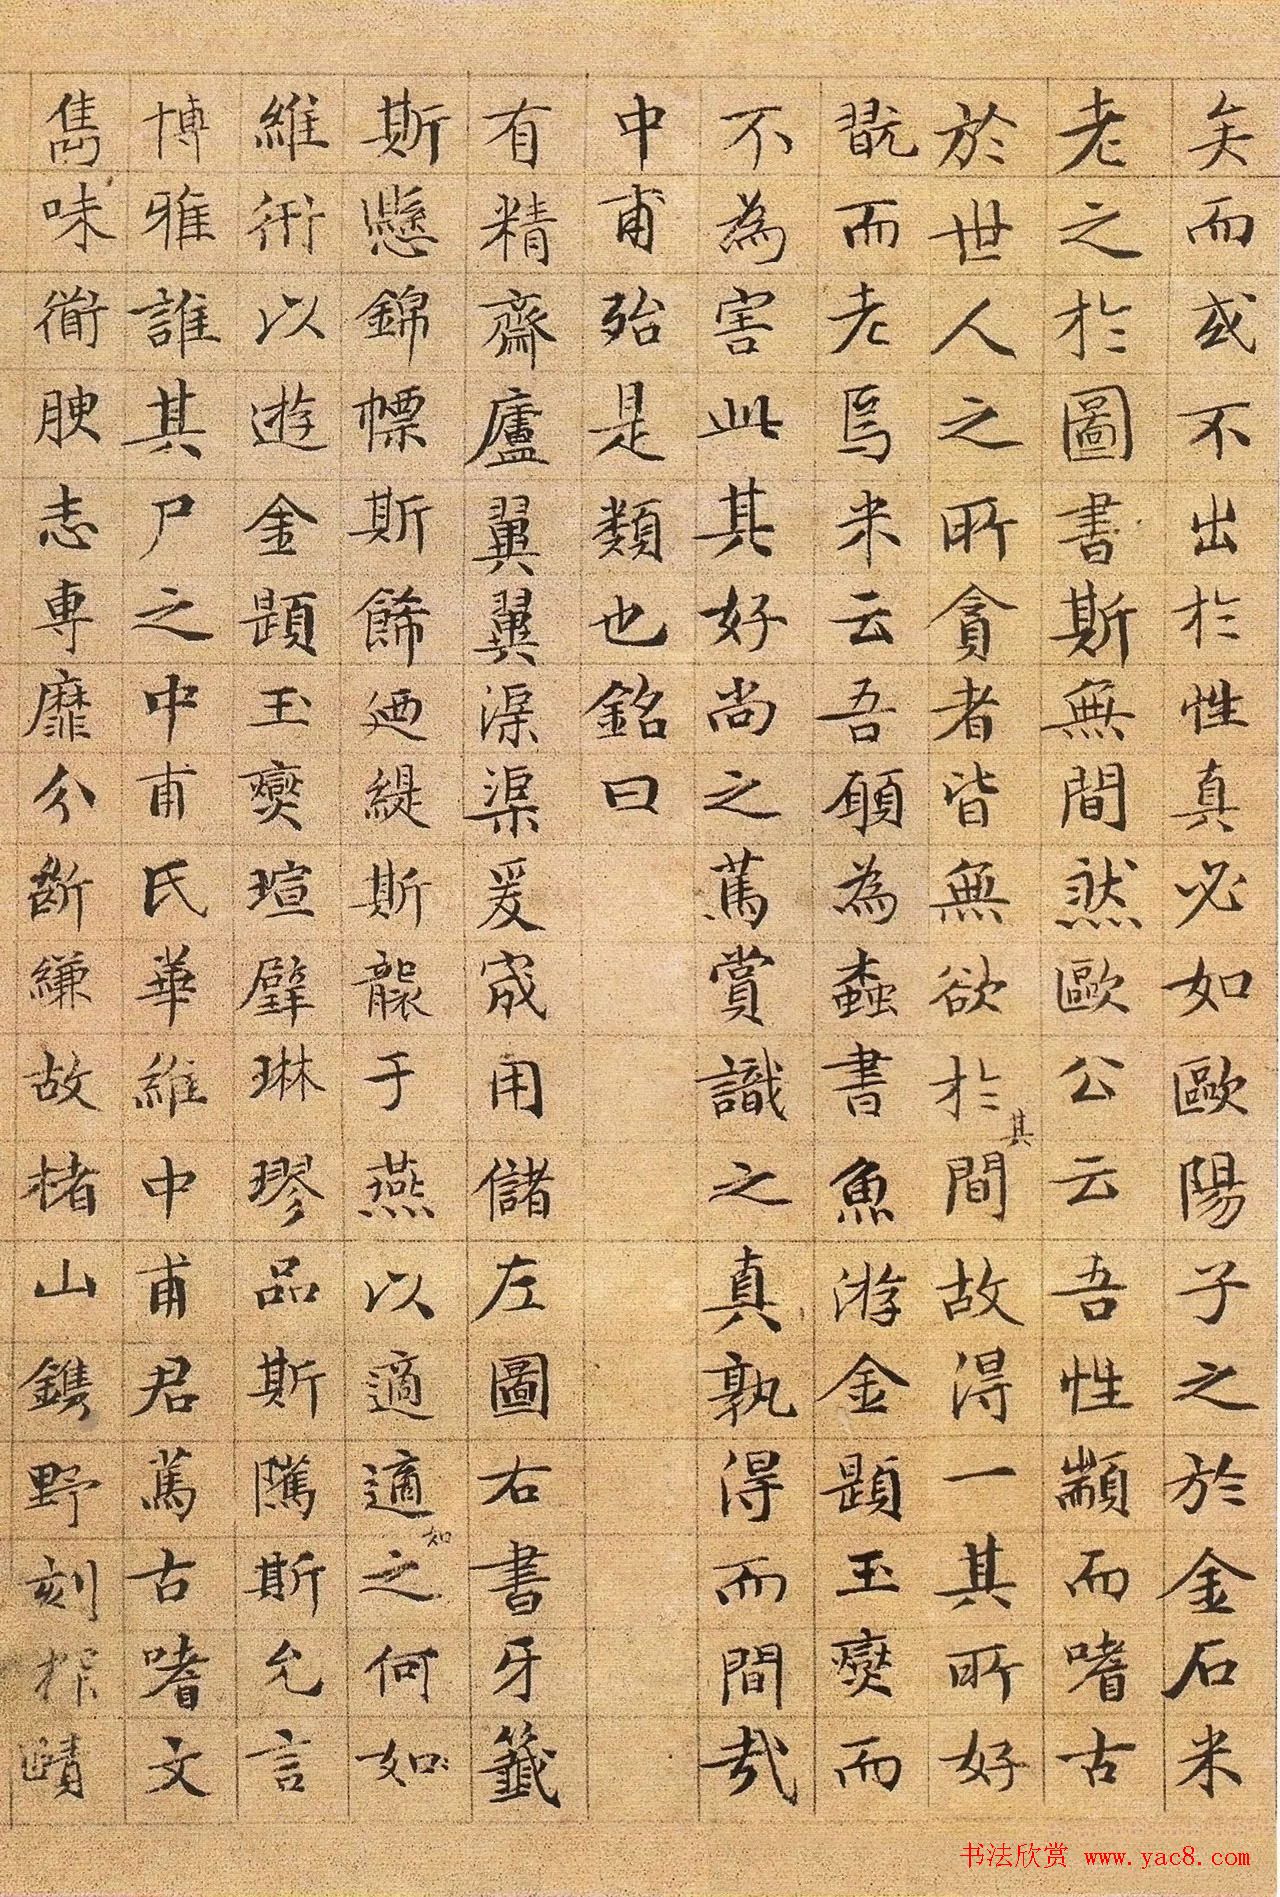 矣而或不出於性真必如歐陽子之於金石米
老之於圖書斯無間然歐公云吾性顓而嗜古
於世人之所貪者皆無欲於其間故得一其所好
翫而老焉米云吾願為蠹書魚游金題玉躞而
不為害此其好尚之篤賞識之真孰得而間哉
中甫殆是類也銘曰
有精齋廬翼翼渠渠爰宬用儲左圖右書牙籤
斯懸錦幖斯飾廼緹斯襲于燕以適適之何如如
維衎以遊金題玉躞瑄璧琳璆品斯騭斯允言
博雅誰其尸之中甫氏華維中甫君篤古嗜文
雋味道腴志專靡分斷縑故楮山鐫野刻
書法欣赏 www.yac8.com